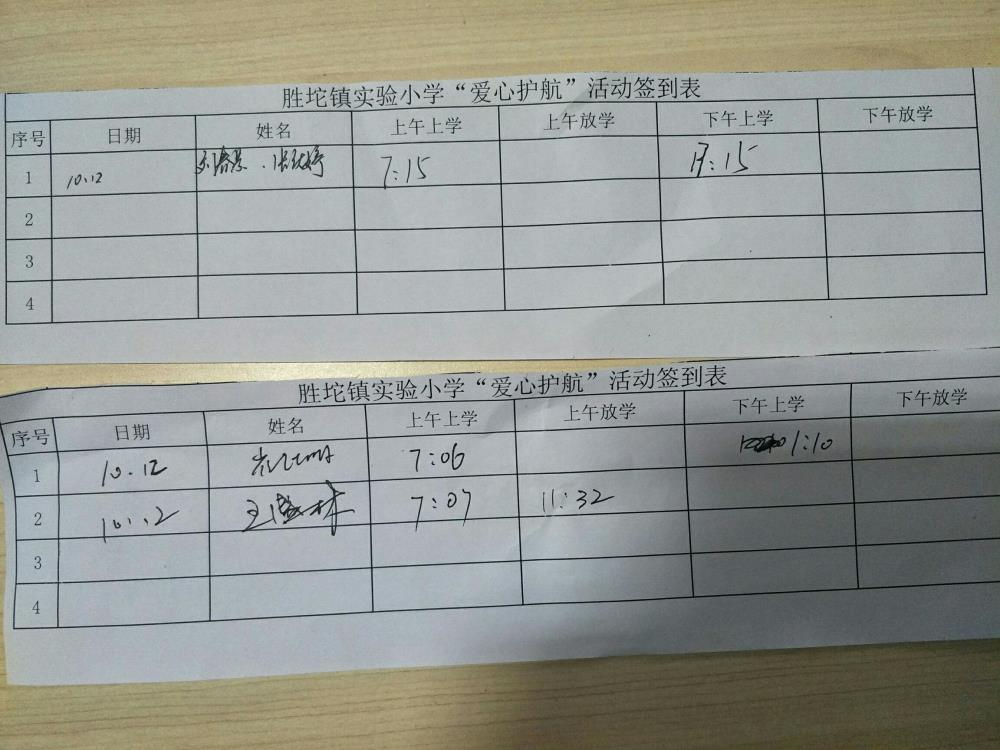 胜坨镇实验小学“爱心护航”活动签到表
序号 日期 姓名 上午上学 上午放学 下午上学 下午放学
1 10.12 7:15
2
3
4
胜坨镇实验小学“爱心护航”活动签到表
序号 日期 姓名 上午上学 上午放学 下午上学 下午放学
1 10.12 7:06 1:10
2 7:07 11:32
3
4